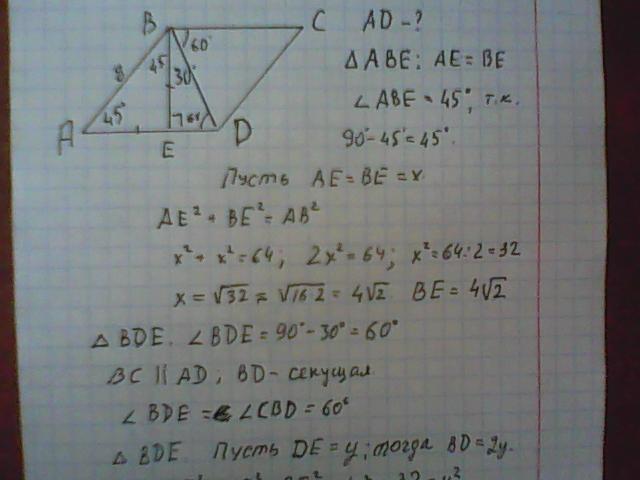 B C AD - ?
60°
45 30°
8
45° 60°
A E D
△ABE: AE = BE
∠ABE = 45°, т.к.
90° - 45° = 45°.
Пусть AE = BE = x
AE² + BE² = AB²
x² + x² = 64; 2x² = 64; x² = 64:2 = 32
x = √32 = √16·2 = 4√2 BE = 4√2
△ BDE. ∠BDE = 90° - 30° = 60°
BC || AD; BD - секущая
∠ BDE = ∠CBD = 60°
△ BDE Пусть DE = y; тогда BD = 2y.